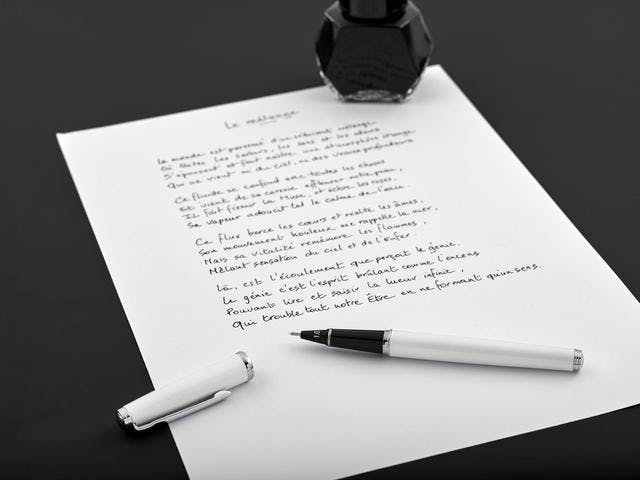 Le mélange
Le monde est parsemé d'un mélange
Où les saveurs, les sens et les odeurs
S'épousent et font naître une atmosphère étrange
Qui ne vient ni du ciel, ni des vraies profondeurs
Ce fluide se confond avec toutes les choses
Et vient de sa caresse effleurer notre peau,
Il fait frémir la Muse, et éclore les roses,
Sa vapeur adoucit tel le calme de l'eau.
Ce flux berce les cœurs et les âmes,
Son mouvement houleux me rappelle la mer,
Mais sa vitalité remémore les flammes,
Mêlant sensation du ciel et de l'Enfer.
Là, est l'écoulement que perçoit le génie.
Le génie c'est l'esprit brûlant comme l'encens
Pouvant lire et saisir la lueur infinie,
Qui trouble tout notre Être en ne formant qu'un sens.